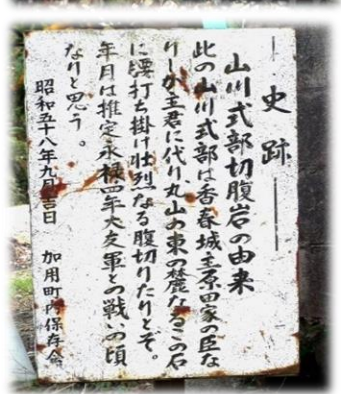 史跡
山川式部切腹岩の由来
此の山川式部は香春城主原田家の臣な
りしが主君に代り、丸山の東の麓なるこの石
に腰打ち掛け壮烈なる腹切りたりとぞ。
年月は推定永禄四年大友軍との戦いの頃
なりと思う。
昭和五十八年九月吉日 加用町内保存会